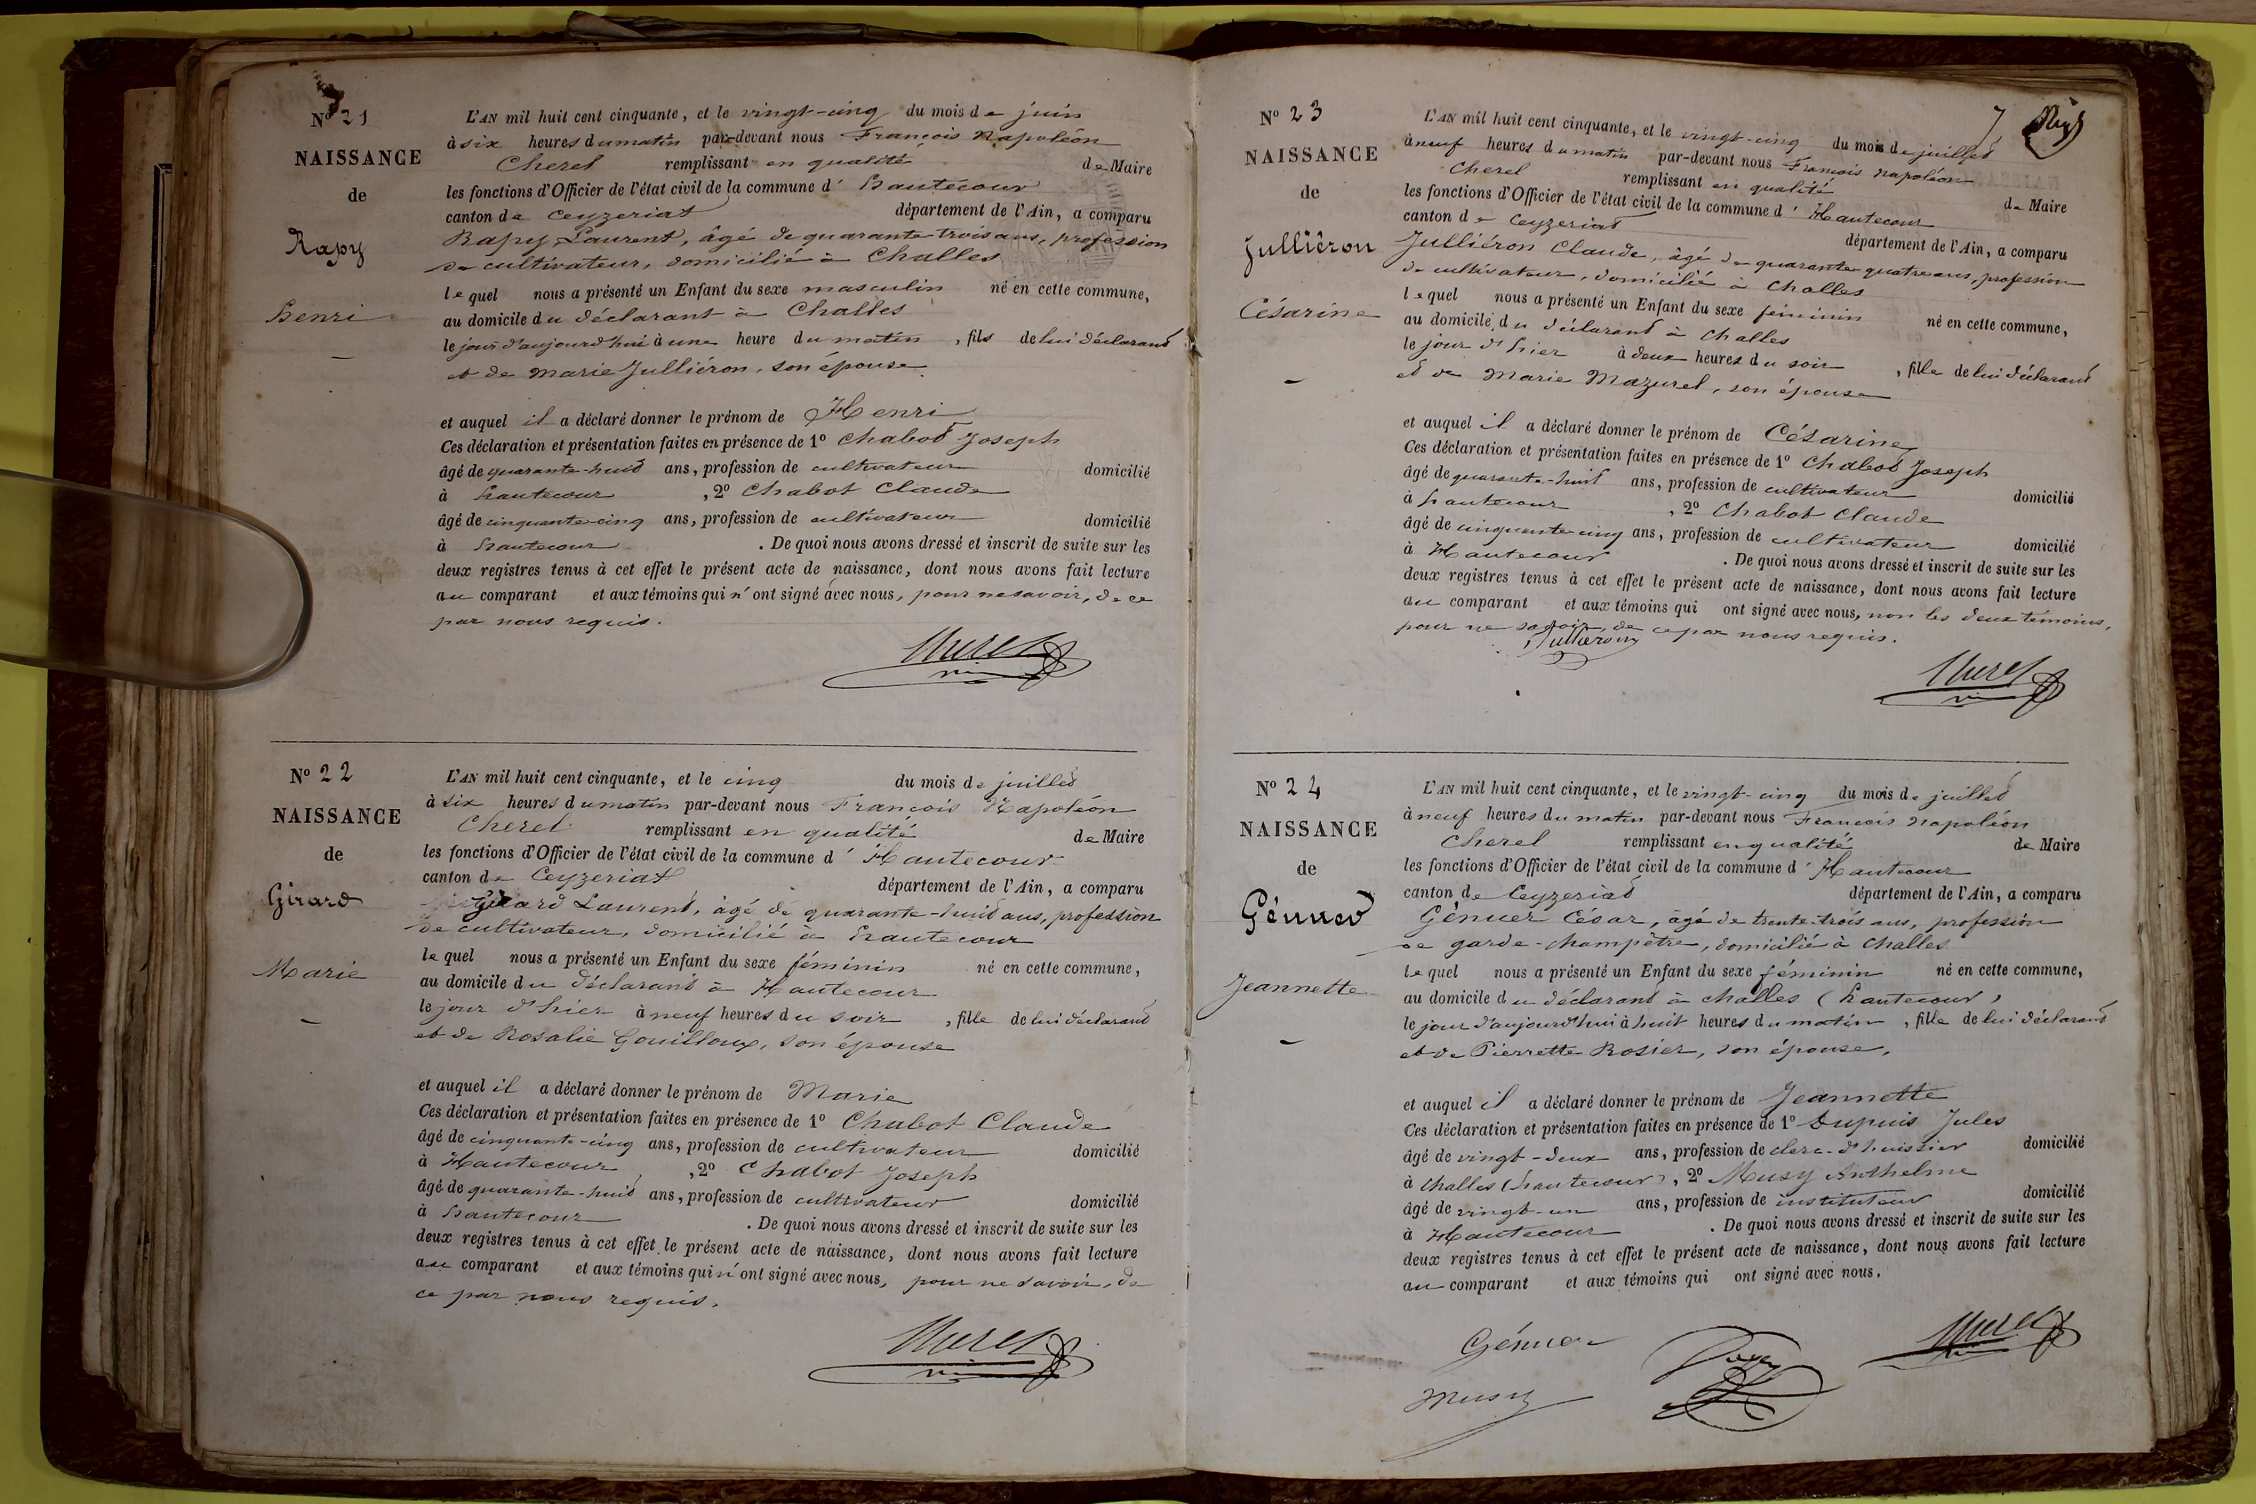 N° 21
NAISSANCE
de
Rapy
Henri
L'AN mil huit cent cinquante, et le vingt-cinq du mois de juin
à six heures du matin par-devant nous François Napoléon
Cherel remplissant en qualité de Maire
les fonctions d'Officier de l'état civil de la commune d' Hautecour
canton de Ceyzeriat département de l'Ain, a comparu
Rapy Laurent, âgé de quarante-trois ans, profession
de cultivateur, domicilié à Challes
lequel nous a présenté un Enfant du sexe masculin né en cette commune,
au domicile du déclarant à Challes
le jour d'aujourd'hui à une heure du matin, fils de lui déclarant
et de Marie Julliéron, son épouse
et auquel il a déclaré donner le prénom de Henri
Ces déclaration et présentation faites en présence de 1° Chabot Joseph
âgé de quarante-huit ans, profession de cultivateur domicilié
à hautecour, 2° Chabot Claude
âgé de cinquante-cinq ans, profession de cultivateur domicilié
à hautecour. De quoi nous avons dressé et inscrit de suite sur les
deux registres tenus à cet effet le présent acte de naissance, dont nous avons fait lecture
au comparant et aux témoins qui n'ont signé avec nous, pour ne savoir, de ce
par nous requis.
N° 22
NAISSANCE
de
Girard
Marie
L'AN mil huit cent cinquante, et le cinq du mois de juillet
à six heures du matin par-devant nous François Napoléon
Cherel remplissant en qualité de Maire
les fonctions d'Officier de l'état civil de la commune d' Hautecour
canton de Ceyzeriat département de l'Ain, a comparu
Girard Laurent, âgé de quarante-huit ans, profession
de cultivateur, domicilié à hautecour
lequel nous a présenté un Enfant du sexe féminin né en cette commune,
au domicile du déclarant à Hautecour
le jour d'hier à neuf heures du soir, fille de lui déclarant
et de Rosalie Gouilloux, son épouse
et auquel il a déclaré donner le prénom de Marie
Ces déclaration et présentation faites en présence de 1° Chabot Claude
âgé de cinquante-cinq ans, profession de cultivateur domicilié
à Hautecour, 2° Chabot Joseph
âgé de quarante-huit ans, profession de cultivateur domicilié
à hautecour. De quoi nous avons dressé et inscrit de suite sur les
deux registres tenus à cet effet le présent acte de naissance, dont nous avons fait lecture
au comparant et aux témoins qui n'ont signé avec nous, pour ne savoir, de
ce par nous requis.
7
N° 23
NAISSANCE
de
Julliéron
Césarine
L'AN mil huit cent cinquante, et le vingt-cinq du mois de juillet
à neuf heures du matin par-devant nous François Napoléon
Cherel remplissant en qualité de Maire
les fonctions d'Officier de l'état civil de la commune d' Hautecour
canton de Ceyzeriat département de l'Ain, a comparu
Julliéron Claude, âgé de quarante quatre ans, profession
de cultivateur, domicilié à Challes
lequel nous a présenté un Enfant du sexe féminin né en cette commune,
au domicile du déclarant à Challes
le jour d'hier à deux heures du soir, fille de lui déclarant
et de Marie Mazurel, son épouse
et auquel il a déclaré donner le prénom de Césarine
Ces déclaration et présentation faites en présence de 1° Chabot Joseph
âgé de quarante-huit ans, profession de cultivateur domicilié
à hautecour, 2° Chabot Claude
âgé de cinquante-cinq ans, profession de cultivateur domicilié
à Hautecour. De quoi nous avons dressé et inscrit de suite sur les
deux registres tenus à cet effet le présent acte de naissance, dont nous avons fait lecture
au comparant et aux témoins qui ont signé avec nous, non les deux témoins,
pour ne savoir, de ce par nous requis.
Julliéron
N° 24
NAISSANCE
de
Génuer
Jeannette
L'AN mil huit cent cinquante, et le vingt-cinq du mois de juillet
à neuf heures du matin par-devant nous François Napoléon
Cherel remplissant en qualité de Maire
les fonctions d'Officier de l'état civil de la commune d' Hautecour
canton de Ceyzeriat département de l'Ain, a comparu
Génuer César, âgé de trente-trois ans, profession
de garde-champêtre, domicilié à Challes
lequel nous a présenté un Enfant du sexe féminin né en cette commune,
au domicile du déclarant à Challes (hautecour)
le jour d'aujourd'hui à huit heures du matin, fille de lui déclarant
et de Pierrette Rosier, son épouse,
et auquel il a déclaré donner le prénom de Jeannette
Ces déclaration et présentation faites en présence de 1° Dupuis Jules
âgé de vingt-deux ans, profession de clerc-d'huissier domicilié
à Challes (hautecour), 2° Musy Anthelme
âgé de vingt-un ans, profession de instituteur domicilié
à Hautecour. De quoi nous avons dressé et inscrit de suite sur les
deux registres tenus à cet effet le présent acte de naissance, dont nous avons fait lecture
au comparant et aux témoins qui ont signé avec nous.
Génuer
Musy